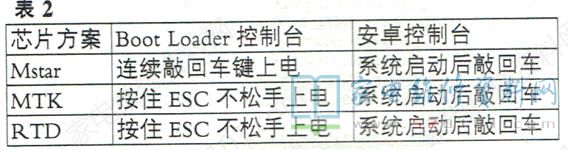 表 2
芯片方案 Boot Loader 控制台 安卓控制台
Mstar 连续敲回车键上电 系统启动后敲回车
MTK 按住 ESC 不松手上电 系统启动后敲回车
RTD 按住 ESC 不松手上电 系统启动后敲回车